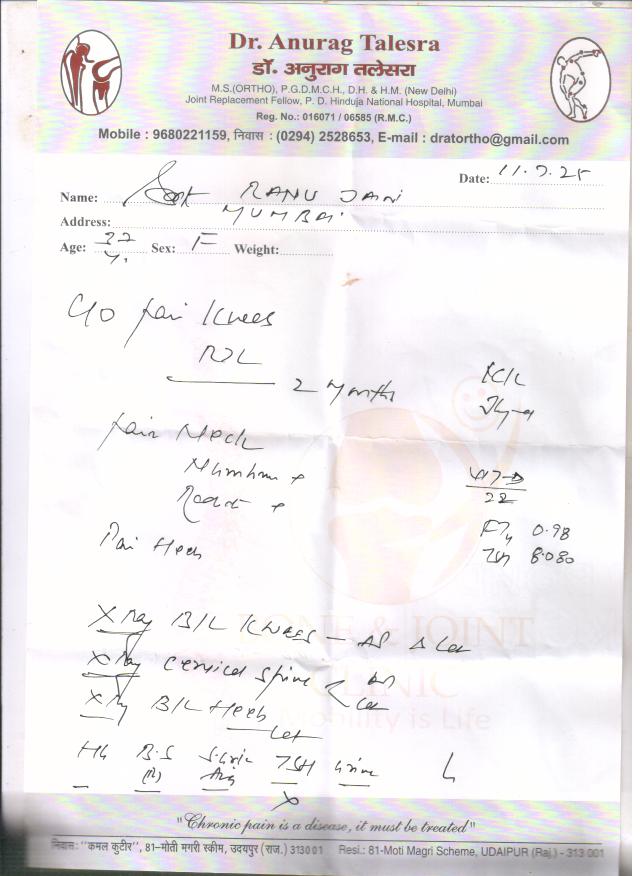 Dr. Anurag Talesra
डॉ. अनुराग तलेसरा
M.S.(ORTHO), P.G.D.M.C.H., D.H. & H.M. (New Delhi)
Joint Replacement Fellow, P. D. Hinduja National Hospital, Mumbai
Reg. No.: 016071 / 06585 (R.M.C.)
Mobile : 9680221159, निवास : (0294) 2528653, E-mail : dratortho@gmail.com
Date:
Name: RANU JAIN
Address: MUMBAI
Age: Sex: F Weight:
C/o pain Knees
R>L
2 months
K/C/L
pain Neck
Numbness +
Vit-D
22
0.98
Pain Heels
TSH 8.080
X Ray B/L KNEES - AP & Lat
X Ray Cervical Spine < AP
Lat
X Ray B/L Heels
Lat
Hb B.S S. Uric TSH Urine
(R) Acid
BONE & JOINT
CLINIC
Mobility is Life
"Chronic pain is a disease, it must be treated"
निवास: "कमल कुटीर", 81-मोती मगरी स्कीम, उदयपुर (राज.) 313001 Resi.: 81-Moti Magri Scheme, UDAIPUR (Raj.) - 313 001